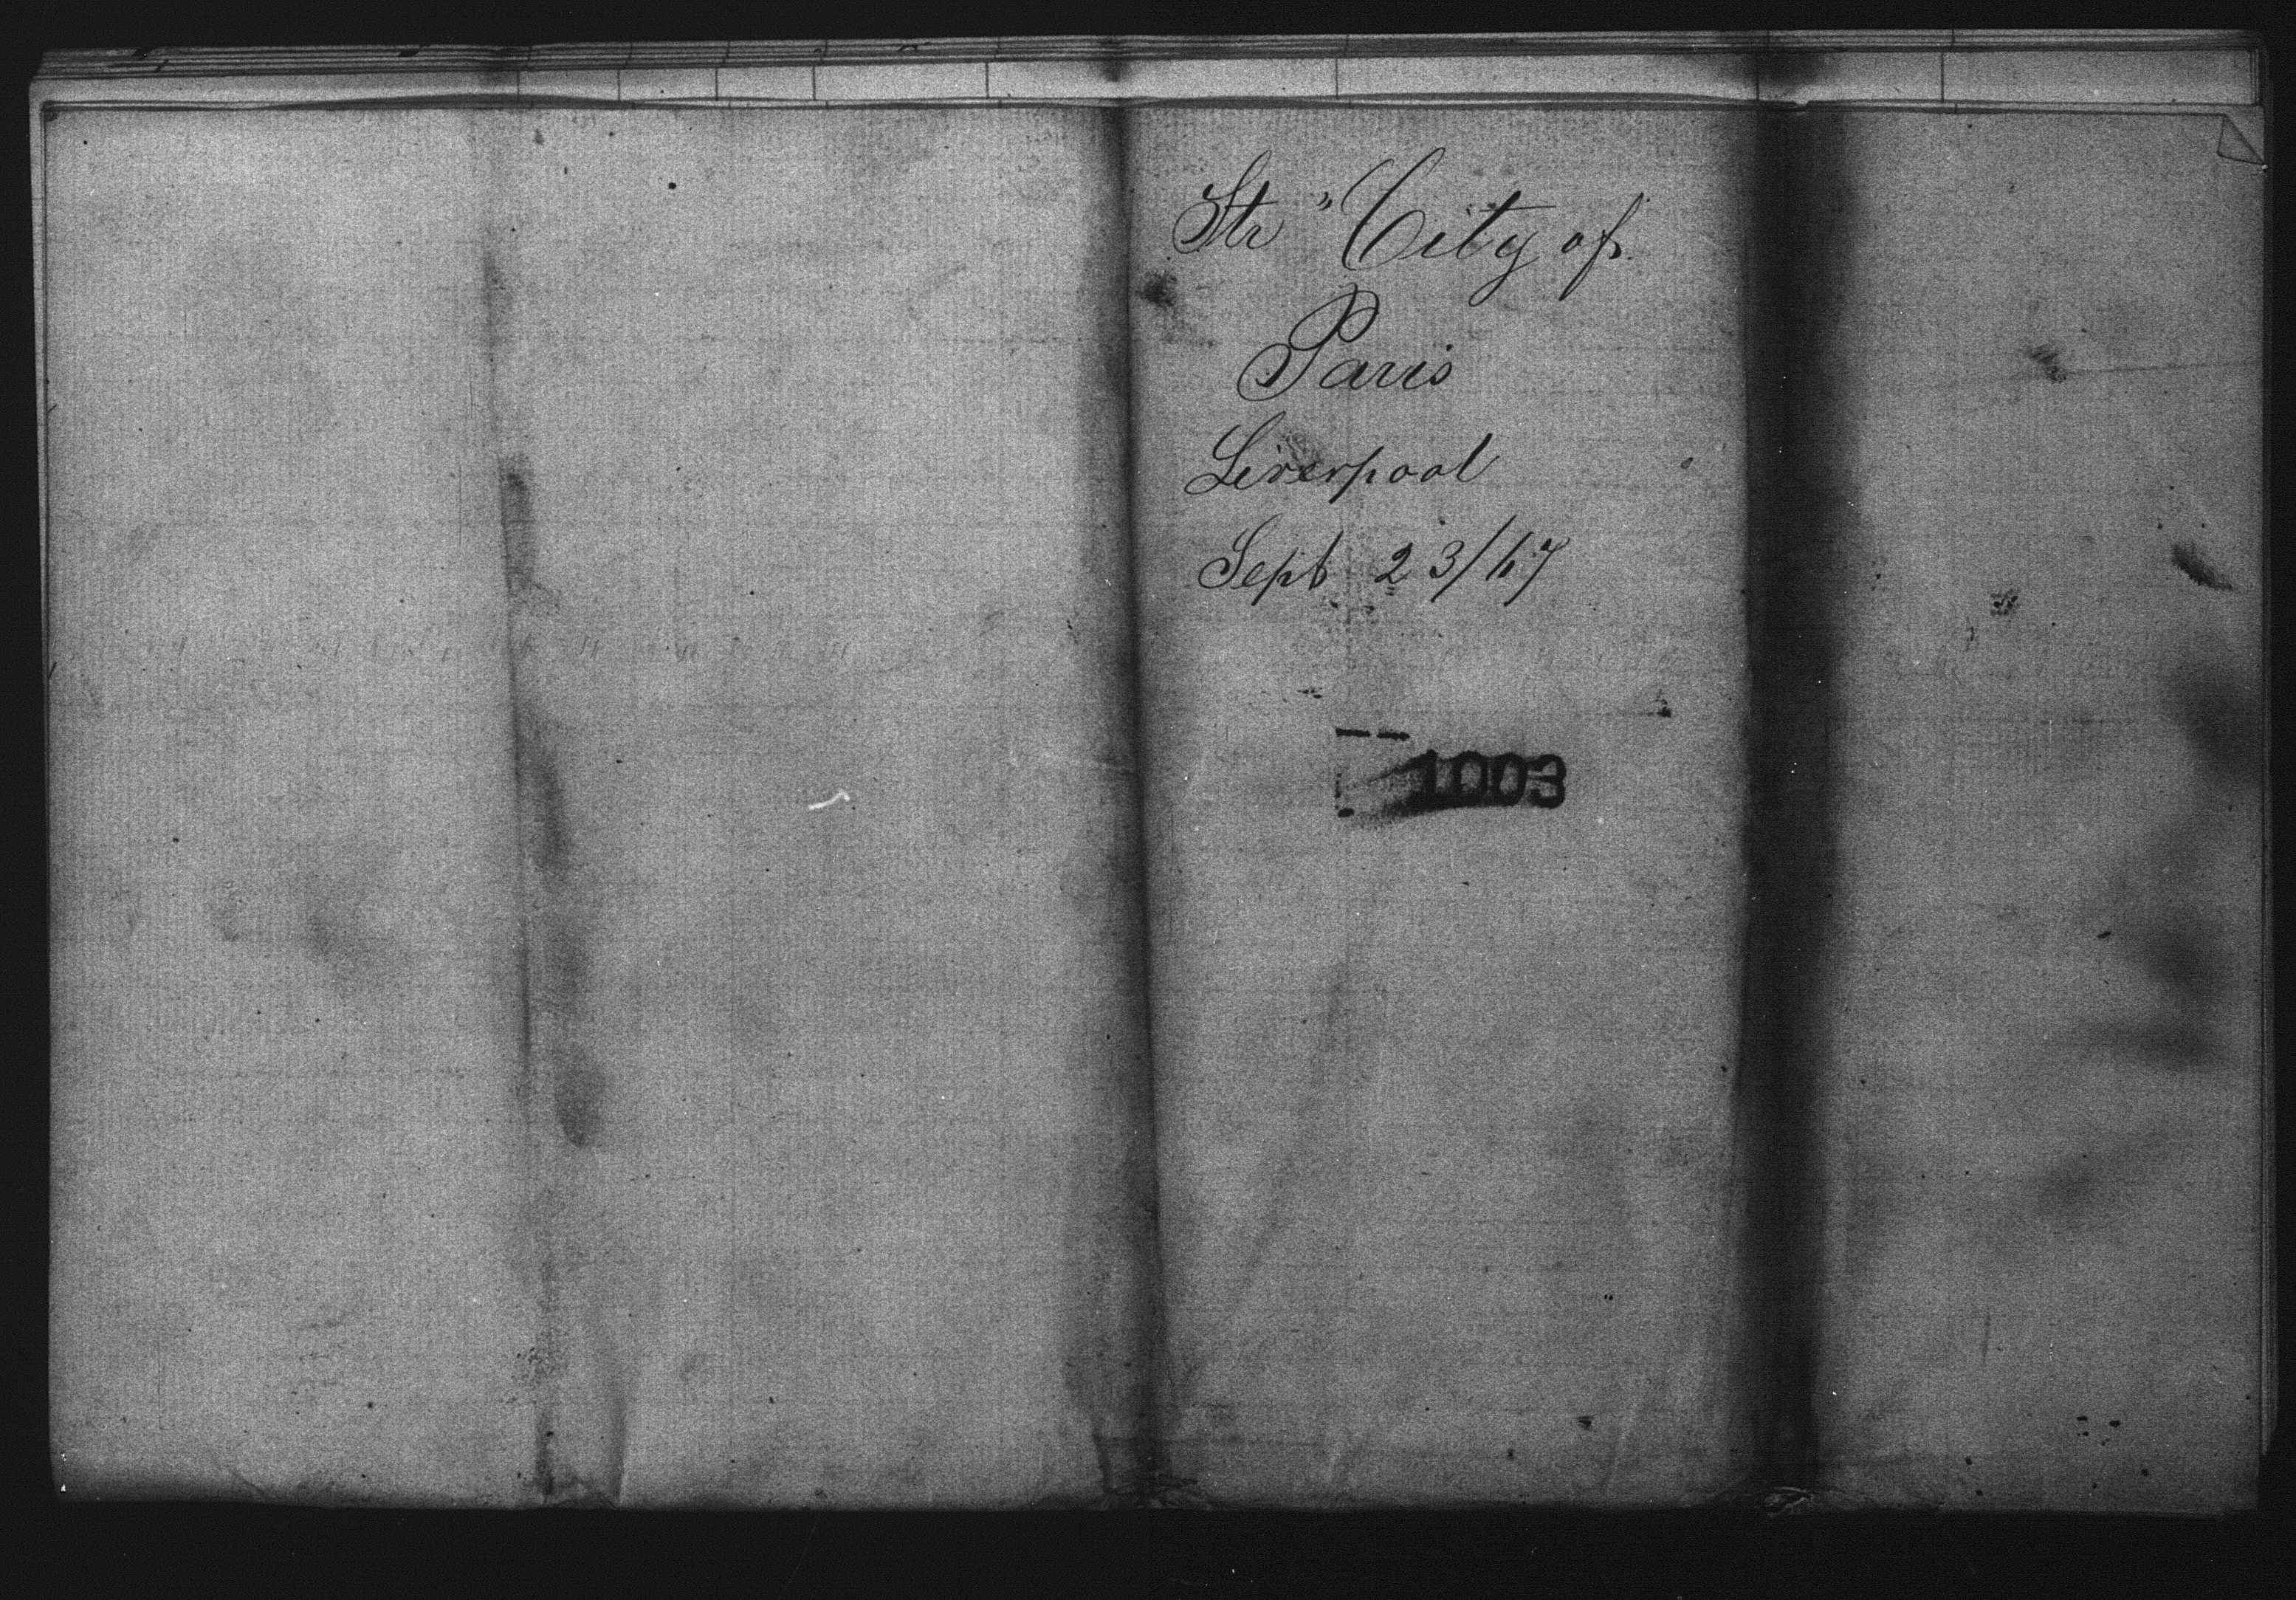 Str "City of
Paris
Liverpool
Sept 23/67
1003